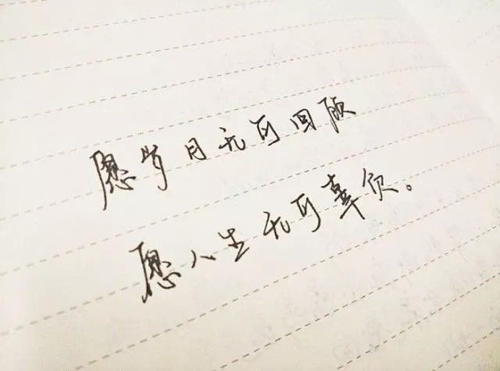 愿岁月无可回顾
愿人生无可辜负。